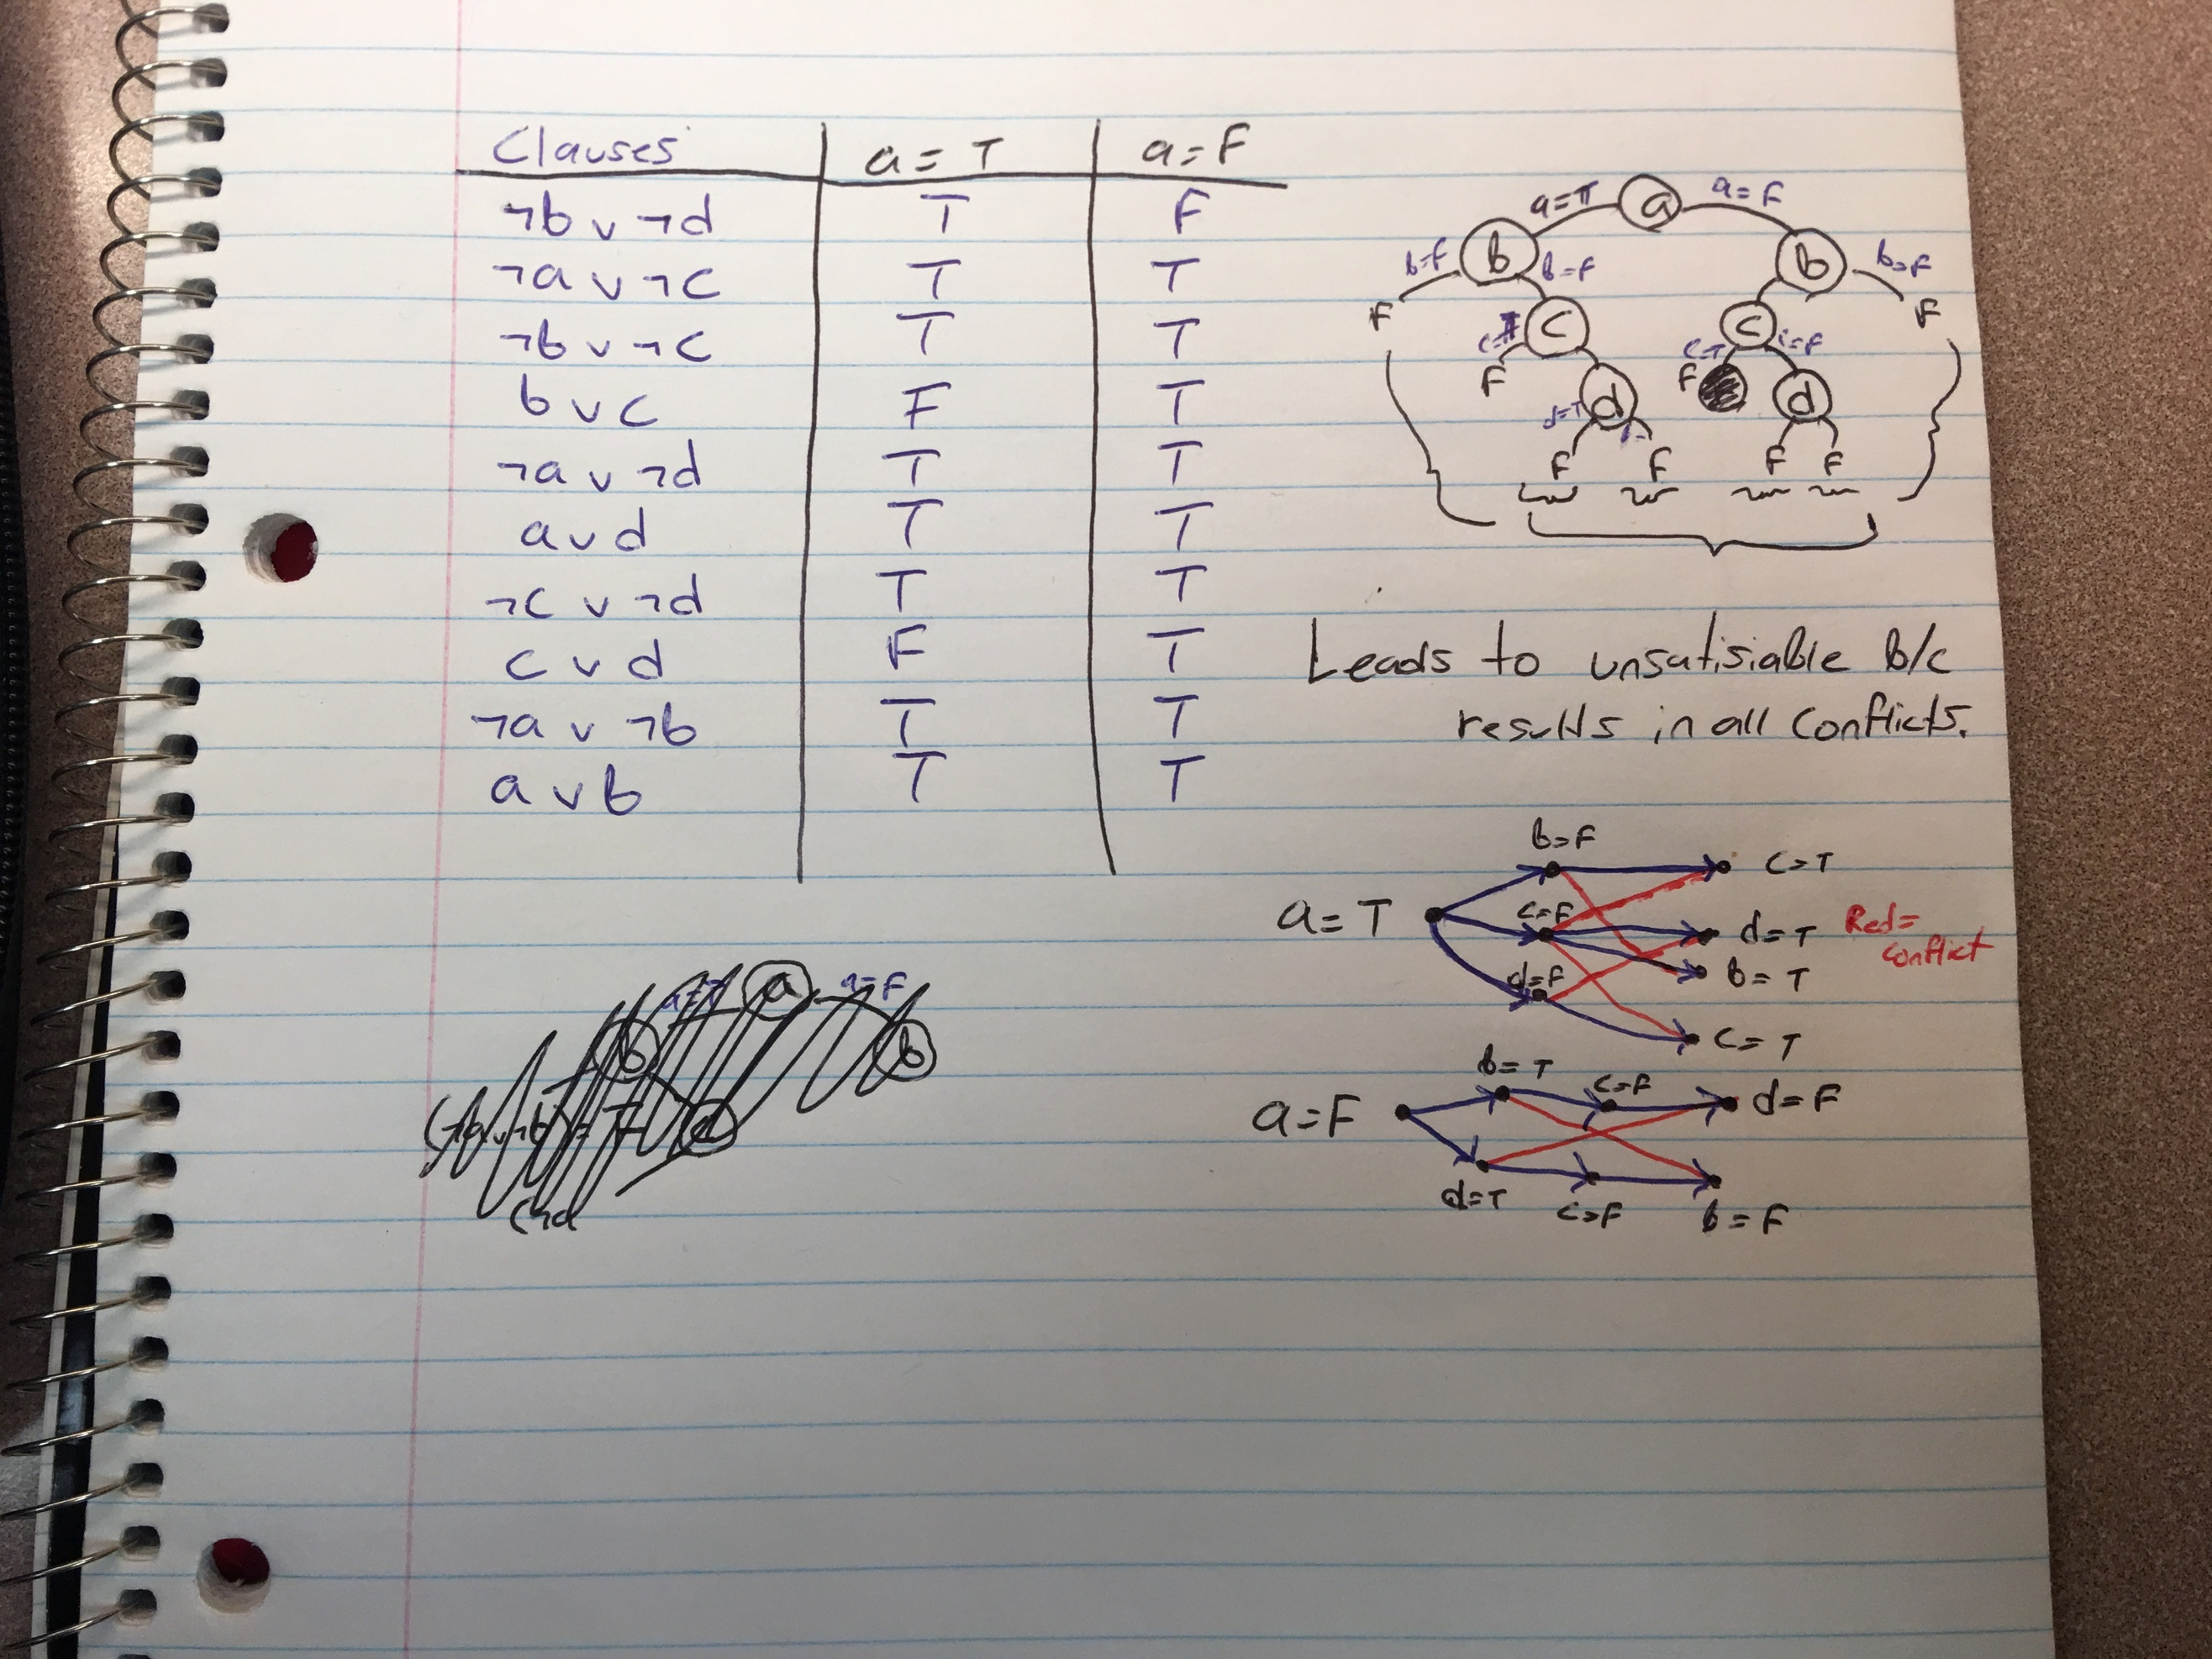 Clauses a = T a = F
¬b ∨ ¬d T F
¬a ∨ ¬c T T
¬b ∨ ¬c T T
b ∨ c F T
¬a ∨ ¬d T T
a ∨ d T T
¬c ∨ ¬d T T
c ∨ d F T
¬a ∨ ¬b T T
a ∨ b T T
a=T a a=F
b=F b b=F b b=F
F c c F
F c=T c=F
F
d d
d=T
F F F F
Leads to unsatisiable b/c
results in all conflicts.
b=F
c=T
a=T c=F d=T Red=
conflict
d=F b=T
c=T
b=T c=F
a=F d=F
d=T c=F b=F
a=T a a=F
b b
(¬d